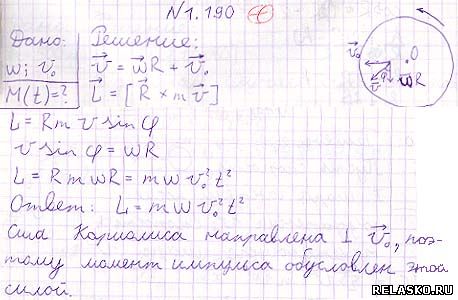 N 1.190 +
Дано: Решение:
w; v₀ v⃗ = w⃗R + v⃗₀
M(t)=? L⃗ = [R⃗ × m v⃗]
L = R m v sin φ
v sin φ = wR
L = R m w R = m w v₀² t²
Ответ: L = m w v₀² t²
Сила Кориолиса направлена ⊥ v⃗₀, поэ-
тому момент импульса обусловлен этой
силой.
O
v⃗₀
φ
w⃗R
v⃗
RELASKO.RU